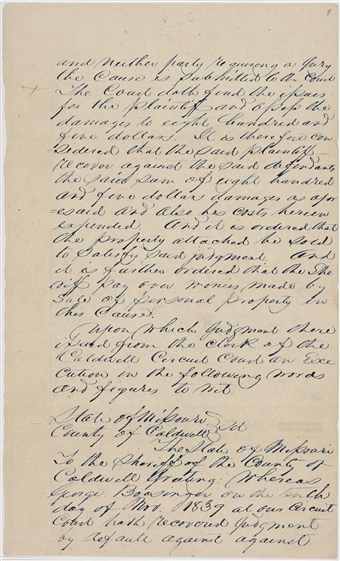 and neither party requiring a jury
the Cause is submitted to the Court
The Court doth find the issues
for the plaintiff and assess the
damages to eight hundred and
five dollars. It is therefore con
sidered that the said plaintiff
recover against the said defendants
the said sum of eight hundred
and five dollars damages as afor
=said and also his costs herein
expended And it is ordered that
the property attached be sold
to satisfy said judgment. And
it is further ordered that the She
riff pay over monies made by
sale of personal property in
this Cause.
Upon which judgment there
issued from the Clerk of the
Caldwell Circuit Court an Exe
cution in the following words
and figures to wit.
State of Missouri
County of Caldwell } Sct
The State of Missouri
To the Sheriff of the County of
Caldwell Greeting: Whereas
George on the
day of Nov. 1839 at our Circuit
Court hath recovered judgment
by default against against